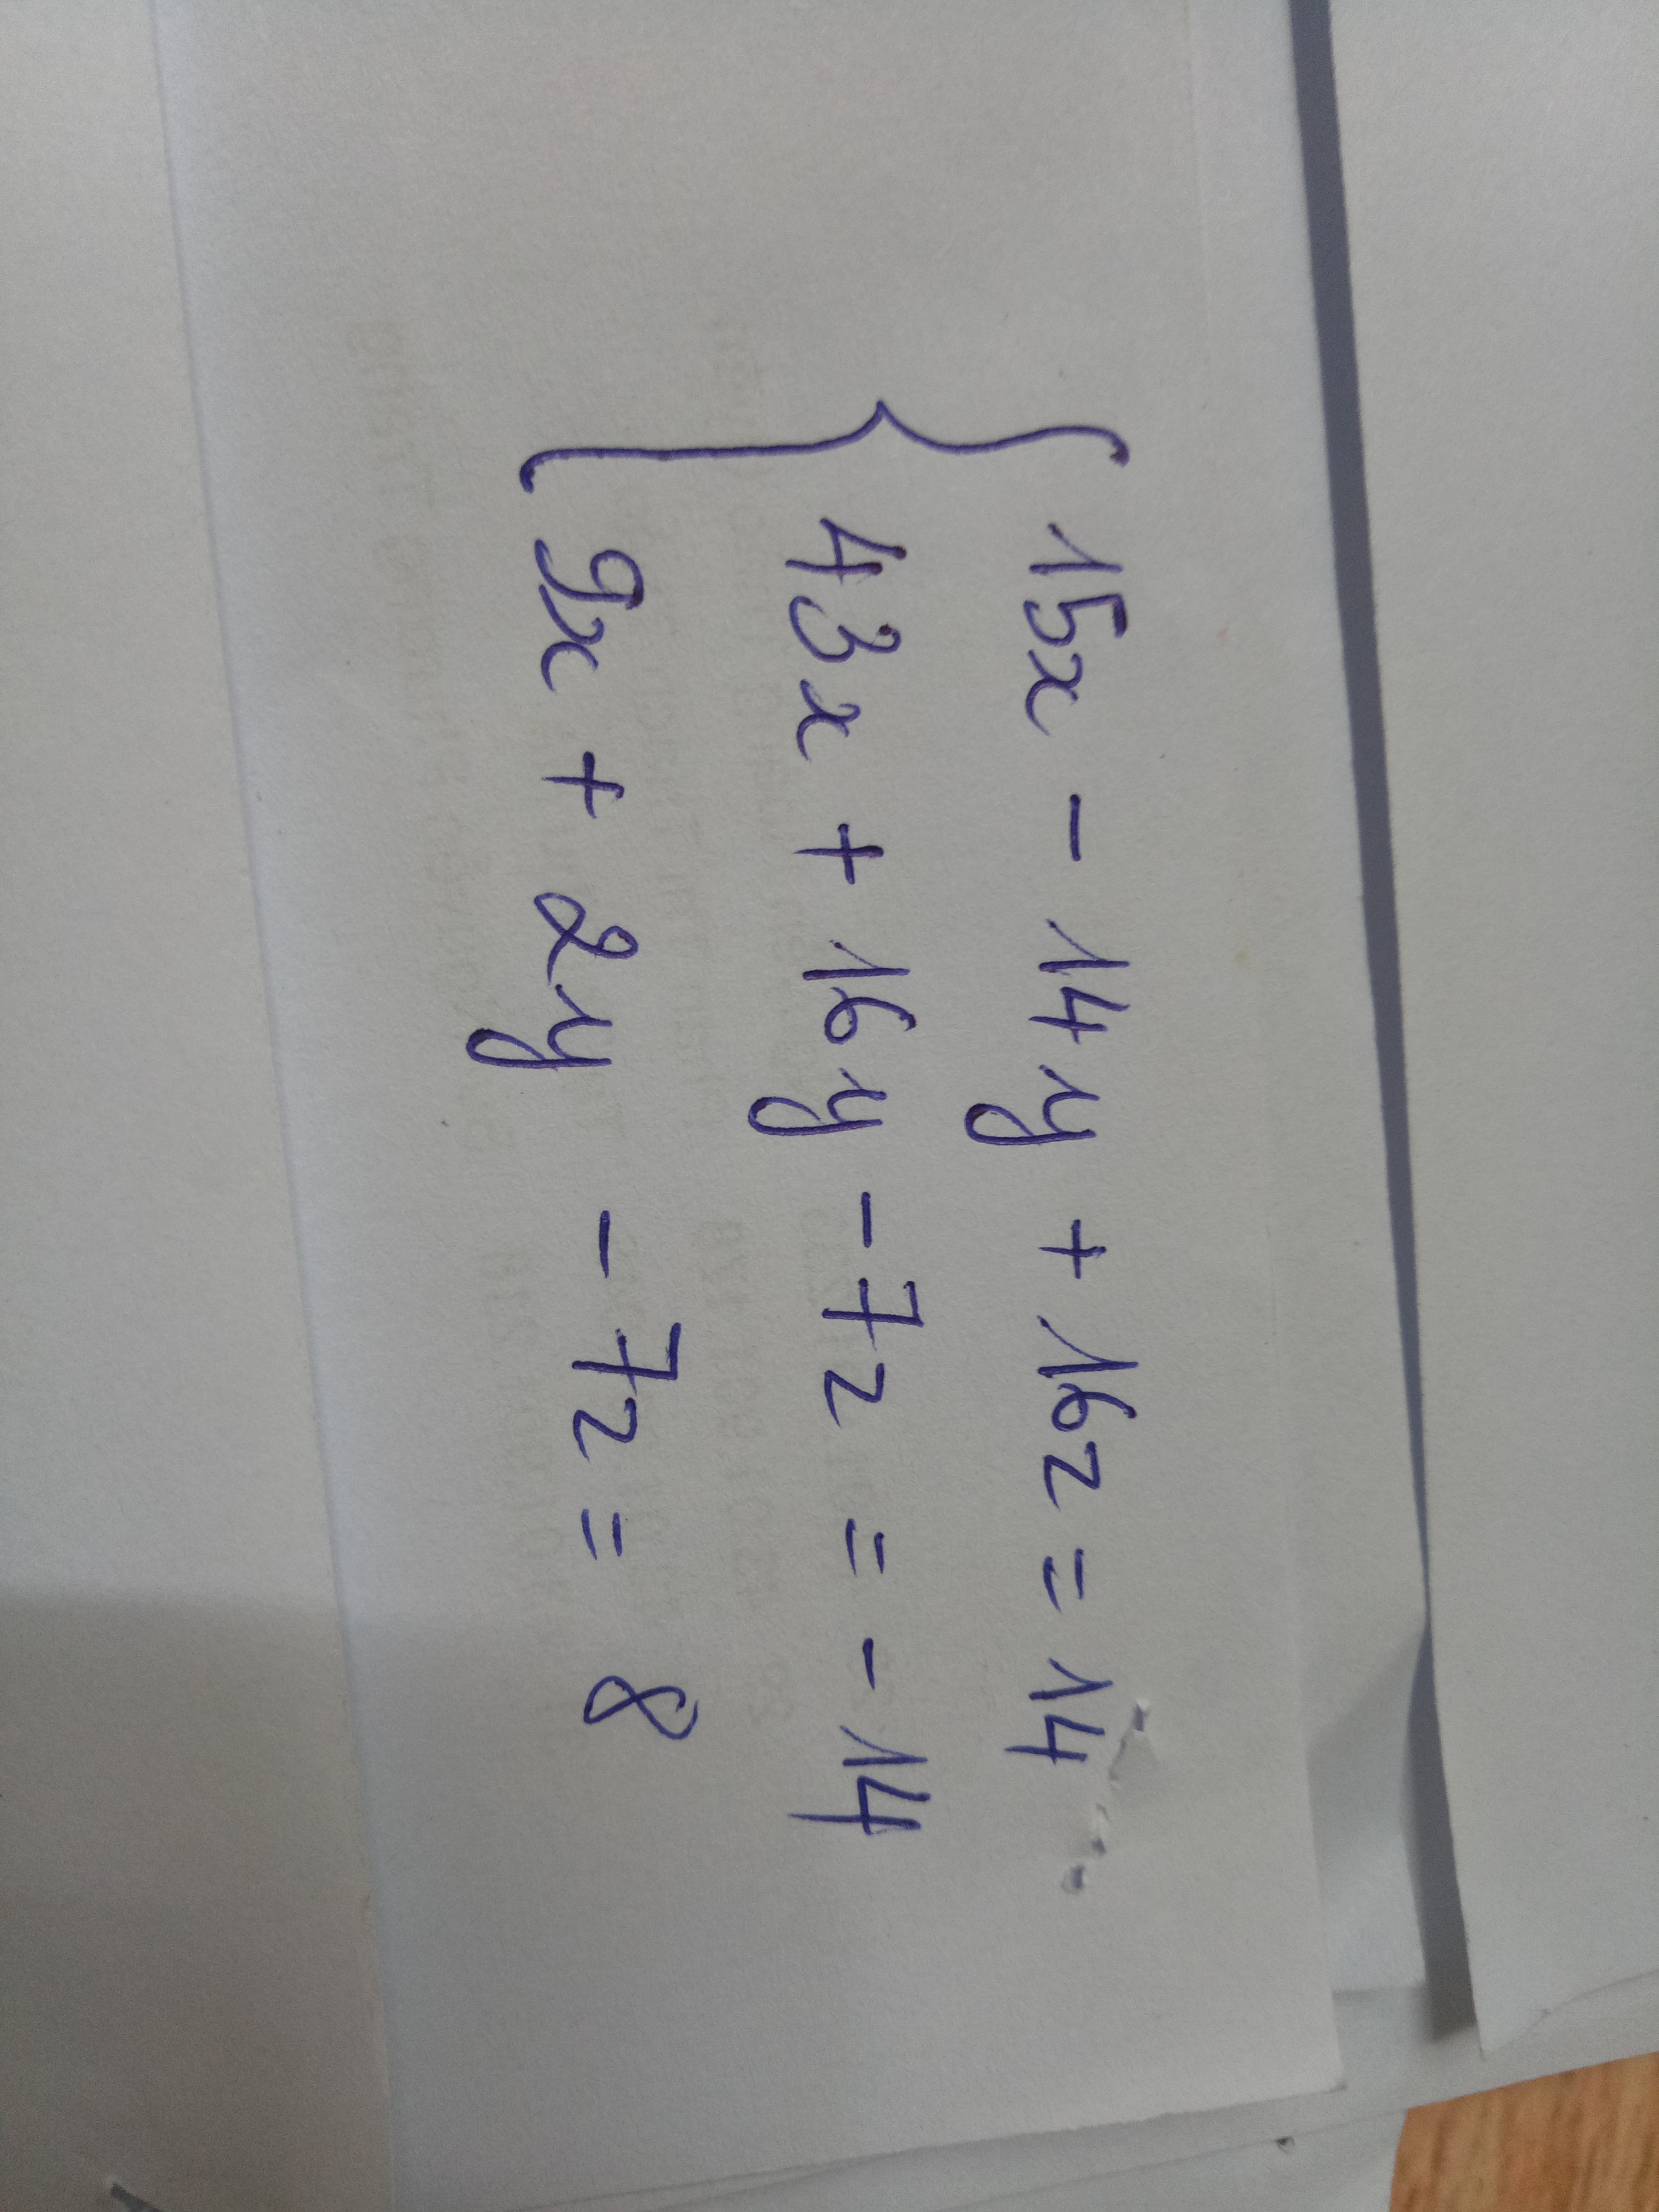 15x - 14y + 16z = 14
43x + 16y - 7z = - 14
9x + 2y - 7z = 8